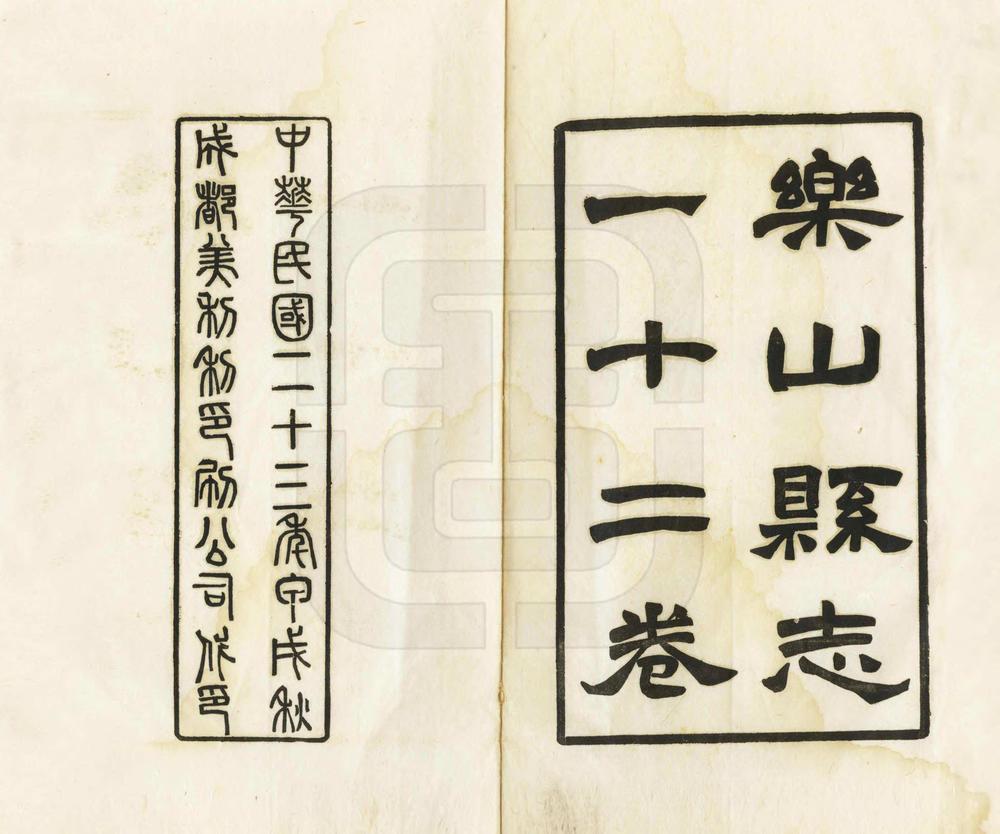 樂山縣志
一十二卷
中華民國二十三年甲戌秋
成都美利利印刷公司代印